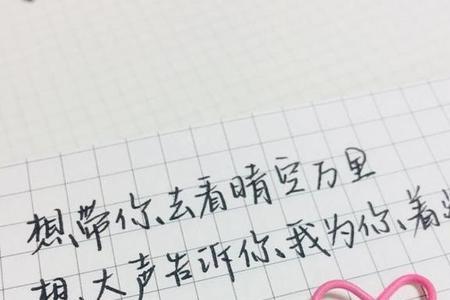 想带你去看晴空万里
想大声告诉你我为你着